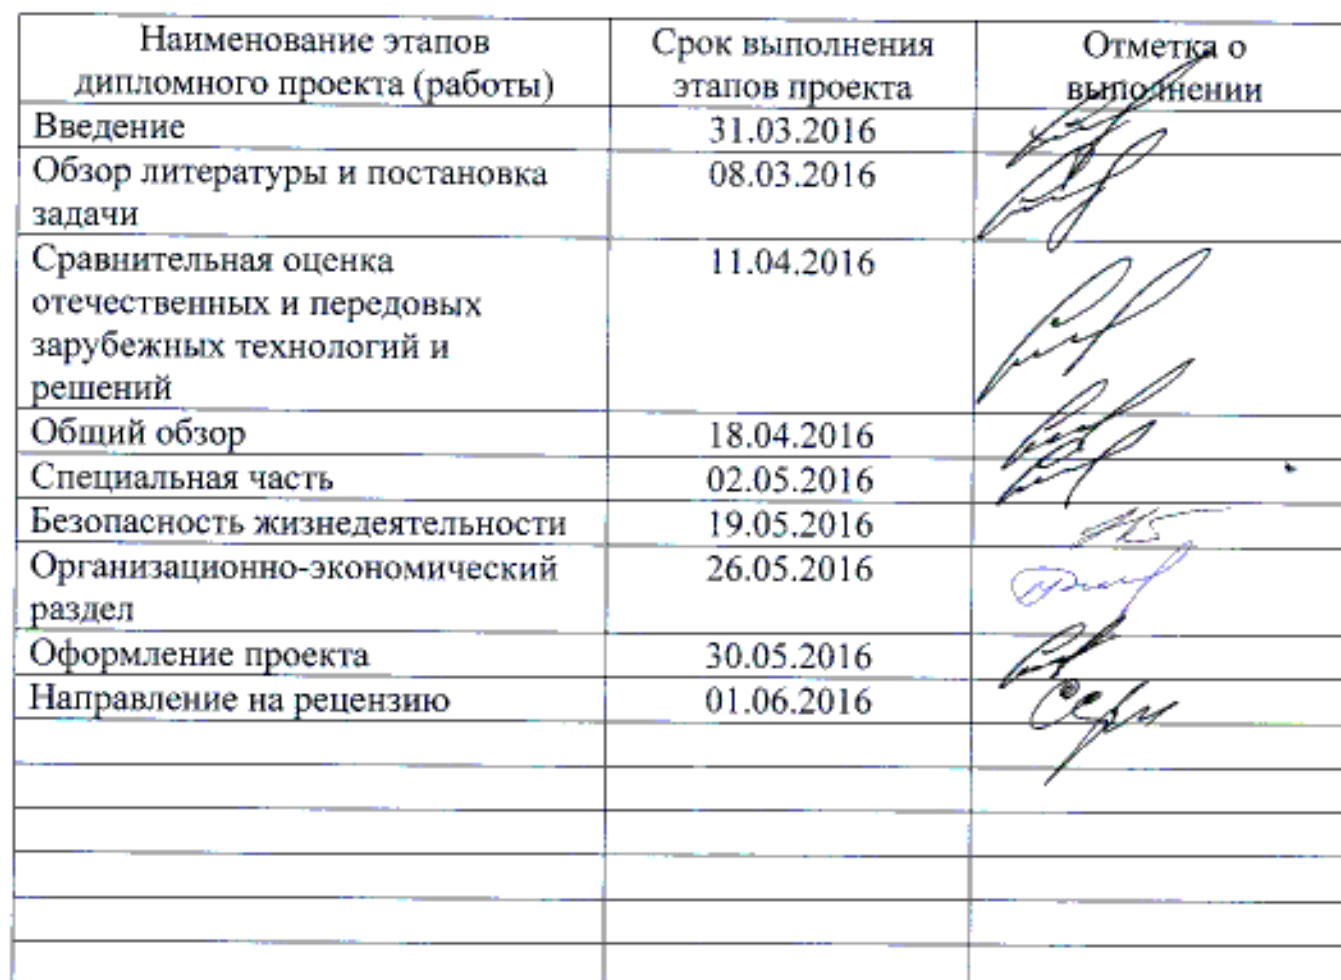 Наименование этапов
дипломного проекта (работы)
Срок выполнения
этапов проекта
Отметка о
выполнении
Введение
31.03.2016
Обзор литературы и постановка
задачи
08.03.2016
Сравнительная оценка
отечественных и передовых
зарубежных технологий и
решений
11.04.2016
Общий обзор
18.04.2016
Специальная часть
02.05.2016
Безопасность жизнедеятельности
19.05.2016
Организационно-экономический
раздел
26.05.2016
Оформление проекта
30.05.2016
Направление на рецензию
01.06.2016